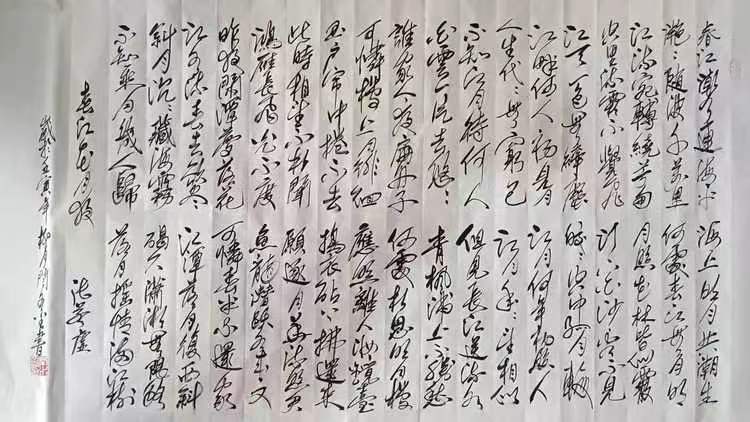 春江潮水連海平 海上明月共潮生
灩〻随波千万里 何處春江無月明
江流宛轉繞芳甸 月照花林皆似霰
空里流霜不覺飛 汀上白沙看不見
江天一色無纖塵 皎〻空中孤月輪
江畔何人初見月 江月何年初照人
人生代〻無窮已 江月年〻望相似
不知江月待何人 但見長江送流水
白雲一片去悠〻 青楓浦上不勝愁
誰家今夜扁舟子 何處相思明月樓
可憐樓上月徘徊 應照離人妝鏡臺
玉户帘中捲不去 搗衣砧上拂還來
此時相望不相聞 願逐月華流照君
鴻雁長飛光不度 魚龍潛躍水成文
昨夜閑潭夢落花 可憐春半不還家
江水流春去欲盡 江潭落月復西斜
斜月沉〻藏海霧 碣石瀟湘無限路
不知乘月幾人歸 落月摇情滿江樹
春江花月夜 張若虚
壬寅年